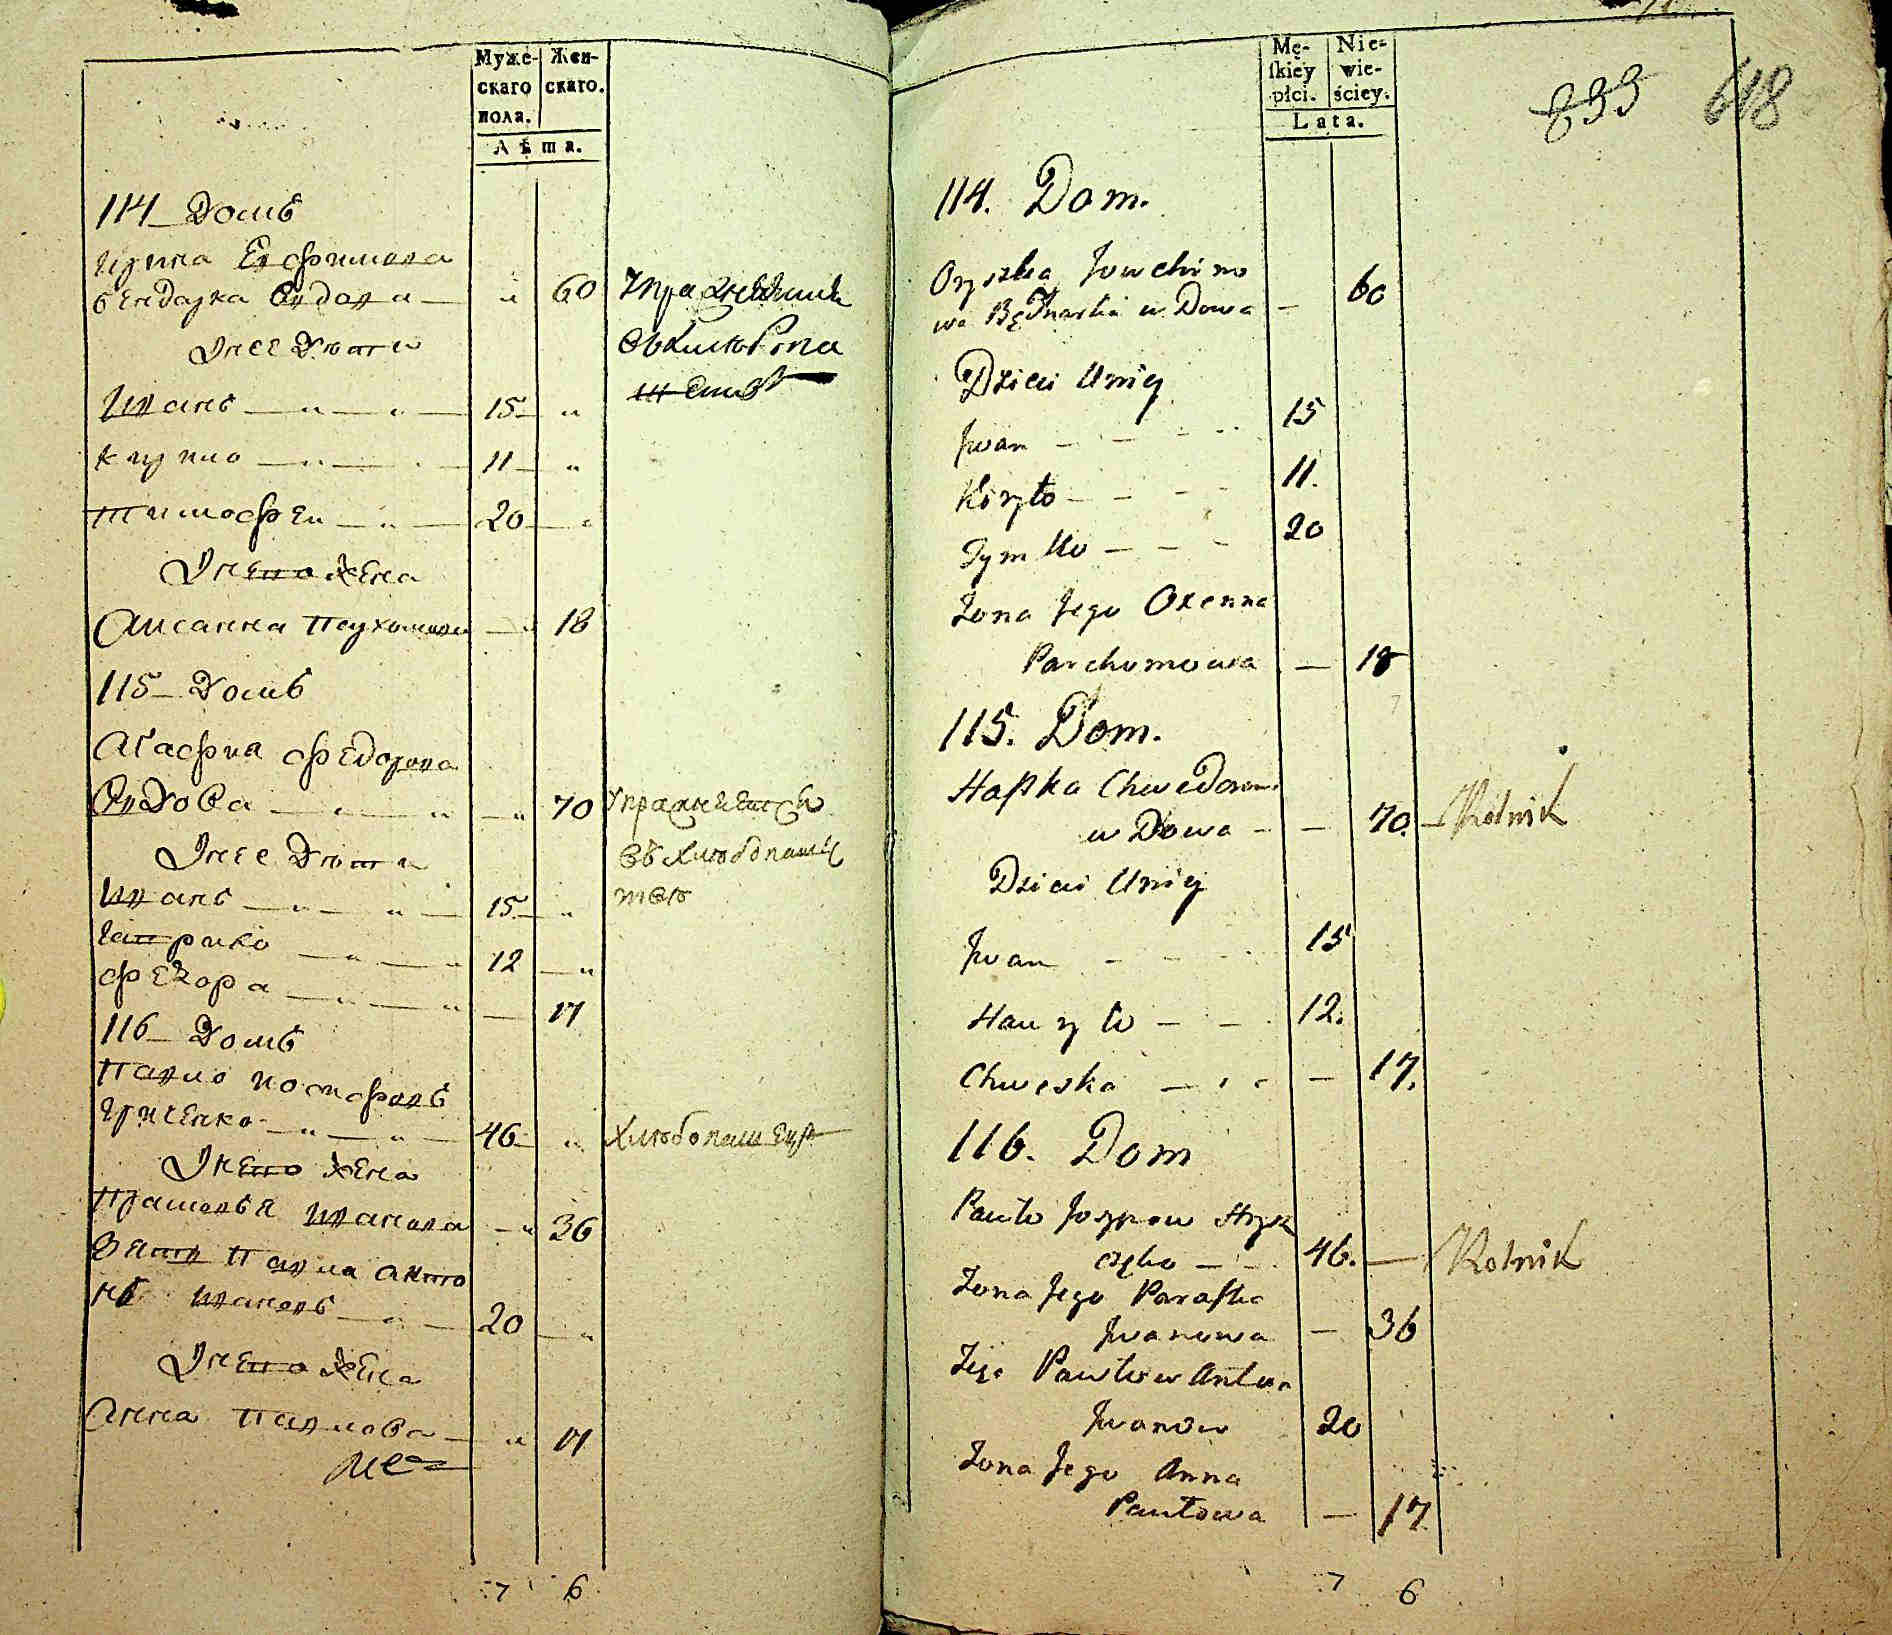 Муже-
скаго
пола.
Жен-
скаго.
Лѣта.
114 Домъ
Ирина Ефимова
бендарка вдова — " 60
У нее дѣти
Иванъ — " — 15 — "
Кирило — " — 11 — "
Тимофеи — " — 20 — "
У него жена
Аксанна Пархомова — " 18
115 Домъ
Агафия Федорова
Вдова — " — " 70 Упражняется
въ хлебопаше
ствѣ
У нее дѣти
Иванъ — " — " 15 — "
Гаврило — " — " 12 — "
Фе — " — " — 17
116 Домъ
Павло Иосифовъ
Гриченко — " — " 46 — " Хлебопашецъ
У него жена
Прасковья Иванова — " 36
Зять Павла Анто
нъ Ивановъ — " — 20 — "
У него жена
Анна Павлова — " 17
7 6
Mę-
skiey
płci.
Nie-
wie-
ściey.
Lata.
833 618
114. Dom.
Oryszka Jowchimo
wa Będnarka wDowa — 60
Dzieci Uniey
Jwan — — — 15
Kiryło — — — 11.
Tymko — — — 20
Zona Jego Oxenna
Parchomowa — 18
115. Dom.
Hapka Chwedorow.
wDowa — — 70. — Rolnik
Dzieci Uniey
Jwan — — — 15
Hawryło — — 12.
Chweska — — 17.
116. Dom
Pawło Josypow Hryc
częko — — 46. — Rolnik
Zona Jego Paraska
Jwanowa — 36
Zięc Pawłow Anton
Jwanow 20
Zona Jego Anna
Pawłowa — 17.
7 6